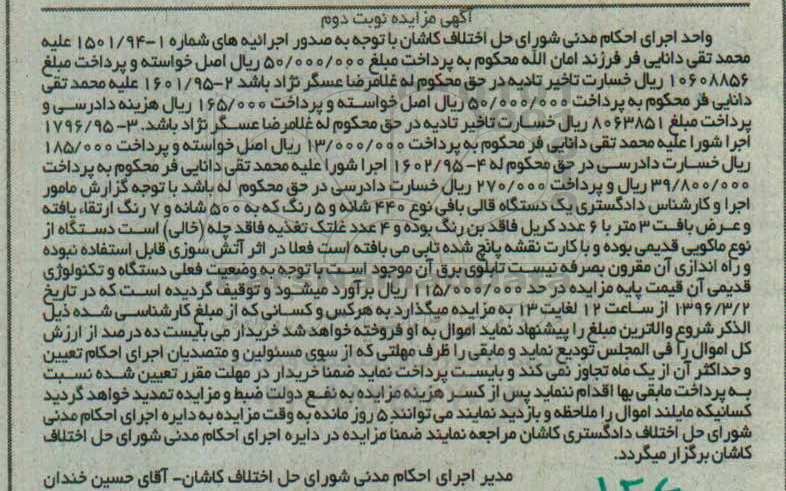 آگهی مزایده نوبت دوم
واحد اجرای احکام مدنی شورای حل اختلاف کاشان با توجه به صدور اجرائیه های شماره ۱-۱۵۰۱/۹۴ علیه
محمد تقی دانایی فر فرزند امان الله محکوم به پرداخت مبلغ ۵۰/۰۰۰/۰۰۰ ریال اصل خواسته و پرداخت مبلغ
۱۰۶۰۸۸۵۶ ریال خسارت تاخیر تادیه در حق محکوم له غلامرضا عسگر نژاد باشد ۲-۱۶۰۱/۹۵ علیه محمد تقی
دانایی فر محکوم به پرداخت ۵۰/۰۰۰/۰۰۰ ریال اصل خواسته و پرداخت ۱۶۵/۰۰۰ ریال هزینه دادرسی و
پرداخت مبلغ ۸۰۶۳۸۵۱ ریال خسارت تاخیر تادیه در حق محکوم له غلامرضا عسگر نژاد باشد. ۳-۱۷۹۶/۹۵
اجرا شورا علیه محمد تقی دانایی فر محکوم به پرداخت ۱۳/۰۰۰/۰۰۰ ریال اصل خواسته و پرداخت ۱۸۵/۰۰۰
ریال خسارت دادرسی در حق محکوم له ۴-۱۶۰۲/۹۵ اجرا شورا علیه محمد تقی دانایی فر محکوم به پرداخت
۳۹/۸۰۰/۰۰۰ ریال و پرداخت ۲۷۰/۰۰۰ ریال خسارت دادرسی در حق محکوم له باشد با توجه گزارش مامور
اجرا و کارشناس دادگستری یک دستگاه قالی بافی نوع ۴۴۰ شانه و ۵ رنگ که به ۵۰۰ شانه و ۷ رنگ ارتقاء یافته
و عرض بافت ۳ متر با ۶ عدد کریل فاقد بن رنگ بوده و ۴ عدد غلتک تغذیه فاقد چله (خالی) است دستگاه از
نوع ماکویی قدیمی بوده و با کارت نقشه پانچ شده تابی می بافته است فعلا در اثر آتش سوزی قابل استفاده نبوده
و راه اندازی آن مقرون بصرفه نیست تابلوی برق آن موجود است با توجه به وضعیت فعلی دستگاه و تکنولوژی
قدیمی آن قیمت پایه مزایده در حد ۱۱۵/۰۰۰/۰۰۰ ریال برآورد میشود و توقیف گردیده است که در تاریخ
۱۳۹۶/۳/۲ از ساعت ۱۲ لغایت ۱۳ به مزایده میگذارد به هرکس و کسانی که از مبلغ کارشناسی شده ذیل
الذکر شروع والاترین مبلغ را پیشنهاد نماید اموال به او فروخته خواهد شد خریدار می بایست ده درصد از ارزش
کل اموال را فی المجلس تودیع نماید و مابقی را ظرف مهلتی که از سوی مسئولین و متصدیان اجرای احکام تعیین
و حداکثر آن از یک ماه تجاوز نمی کند و بایست پرداخت نماید ضمنا خریدار در مهلت مقرر تعیین شده نسبت
به پرداخت مابقی بها اقدام ننماید پس از کسر هزینه مزایده به نفع دولت ضبط و مزایده تمدید خواهد گردید
کسانیکه مایلند اموال را ملاحظه و بازدید نمایند می توانند ۵ روز مانده به وقت مزایده به دایره اجرای احکام مدنی
شورای حل اختلاف دادگستری کاشان مراجعه نمایند ضمنا مزایده در دایره اجرای احکام مدنی شورای حل اختلاف
کاشان برگزار میگردد.
مدیر اجرای احکام مدنی شورای حل اختلاف کاشان- آقای حسین خندان